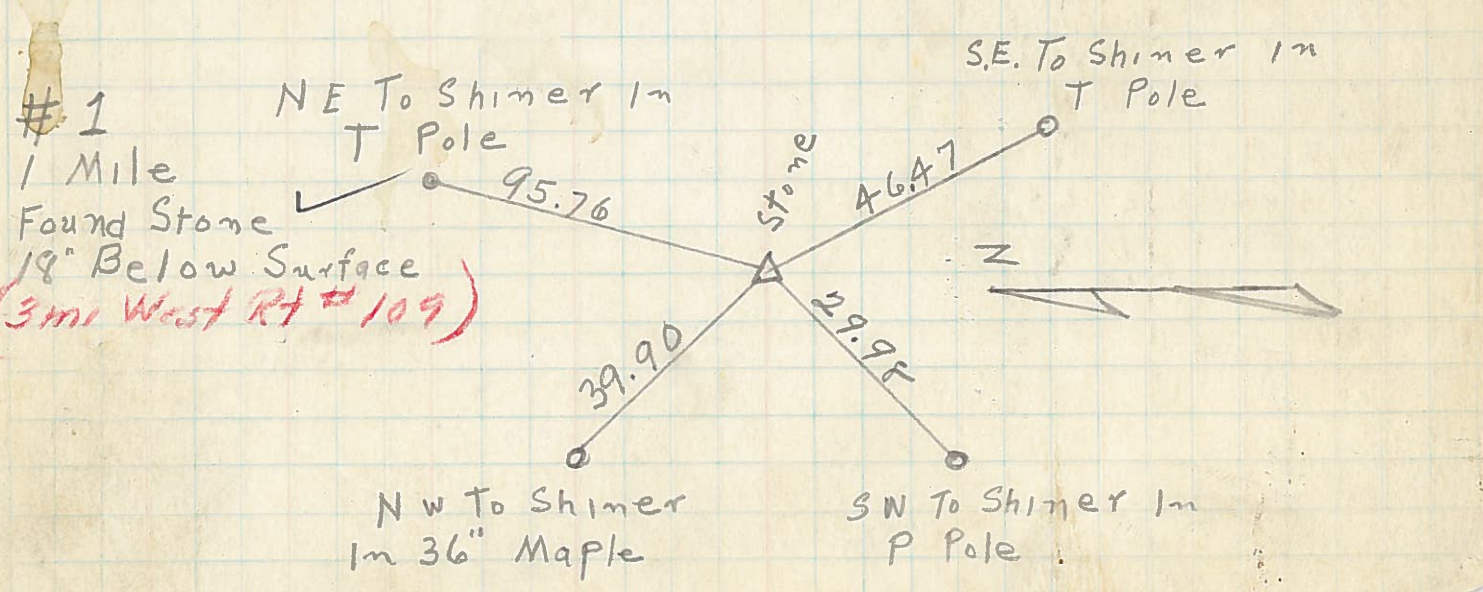 # 1
1 Mile
Found Stone
18" Below Surface
(3 mi West Rt # 109)
NE To Shiner In
T Pole
95.76
Stone
S.E. To Shiner In
T Pole
46.47
N
39.90
29.98
NW To Shiner
In 36" Maple
SW To Shiner In
P Pole